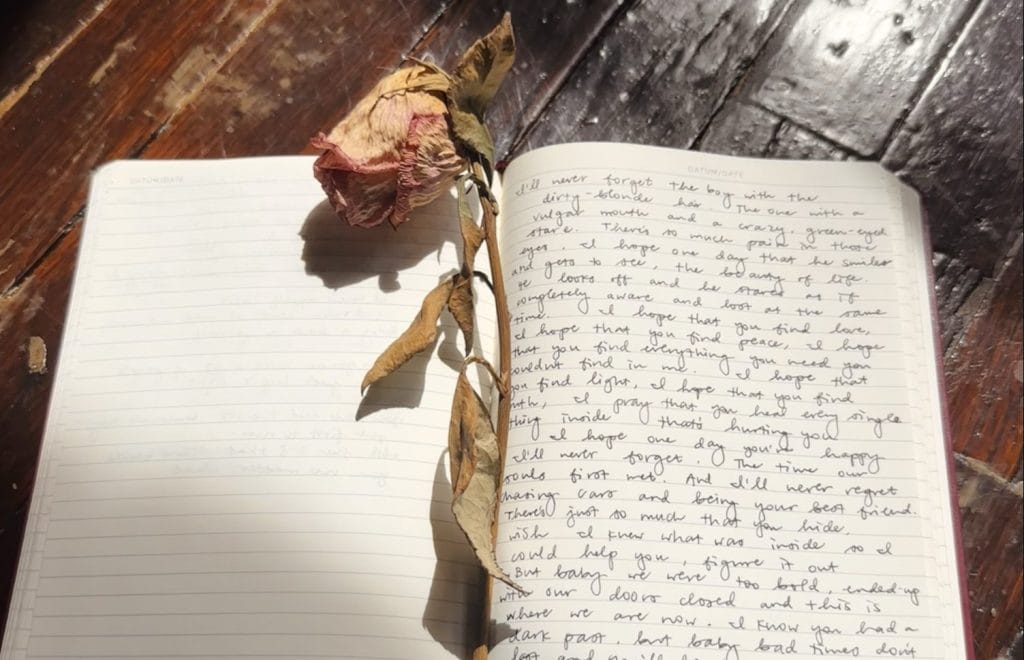 DATUM/DATE
DATUM/DATE
I'll never forget the boy with the
dirty-blonde hair The one with a
vulgar mouth and a crazy, green-eyed
stare. There's so much pain in those
eyes. I hope one day that he smiles
and gets to see, the beauty of life.
He looks off and he stares as if
completely aware and lost at the same
time. I hope that you find love,
I hope that you find peace, I hope
that you find everything you need you
couldn't find in me. I hope that
you find light, I hope that you find
I pray that you heal every single
thing inside that's hurting you
I hope one day you're happy
I'll never forget. The time our
souls first met. And I'll never regret
chasing cars and being your best friend.
There's just so much that you hide,
wish I knew what was inside so I
could help you, figure it out
But baby we were too bold, ended up
with our doors closed and this is
where we are now. I know you had a
dark past, but baby bad times don't
last and